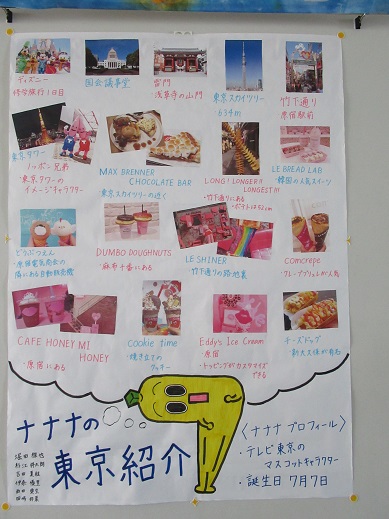 ディズニー
修学旅行1日目
国会議事堂
雷門
・浅草寺の山門
東京スカイツリー
・634m
竹下通り
・原宿駅前
東京タワー
ノッポン兄弟
・東京タワーの
イメージキャラクター
MAX BRENNER
CHOCOLATE BAR
・東京スカイツリーの近く
LONG! LONGER!!
LONGEST!!!
・竹下通りにある
・ポテトは52cm
LE BREAD LAB
・韓国の人気スイーツ
どうぶつえん
・原宿電気商会の
隣にある自動販売機
DUMBO DOUGHNUTS
・麻布十番にある
LE SHINER
・竹下通りの路地裏
comcrepe
・クレープブリュレが人気
CAFE HONEY MI
HONEY
・原宿にある
Cookie time
・焼き立ての
クッキー
Eddy's Ice Cream
・原宿
・トッピングがカスタマイズ
できる
チーズドッグ
・新大久保が有名
ナナナの
東京紹介
〈ナナナ プロフィール〉
・テレビ東京の
マスコットキャラクター
・誕生日 7月7日